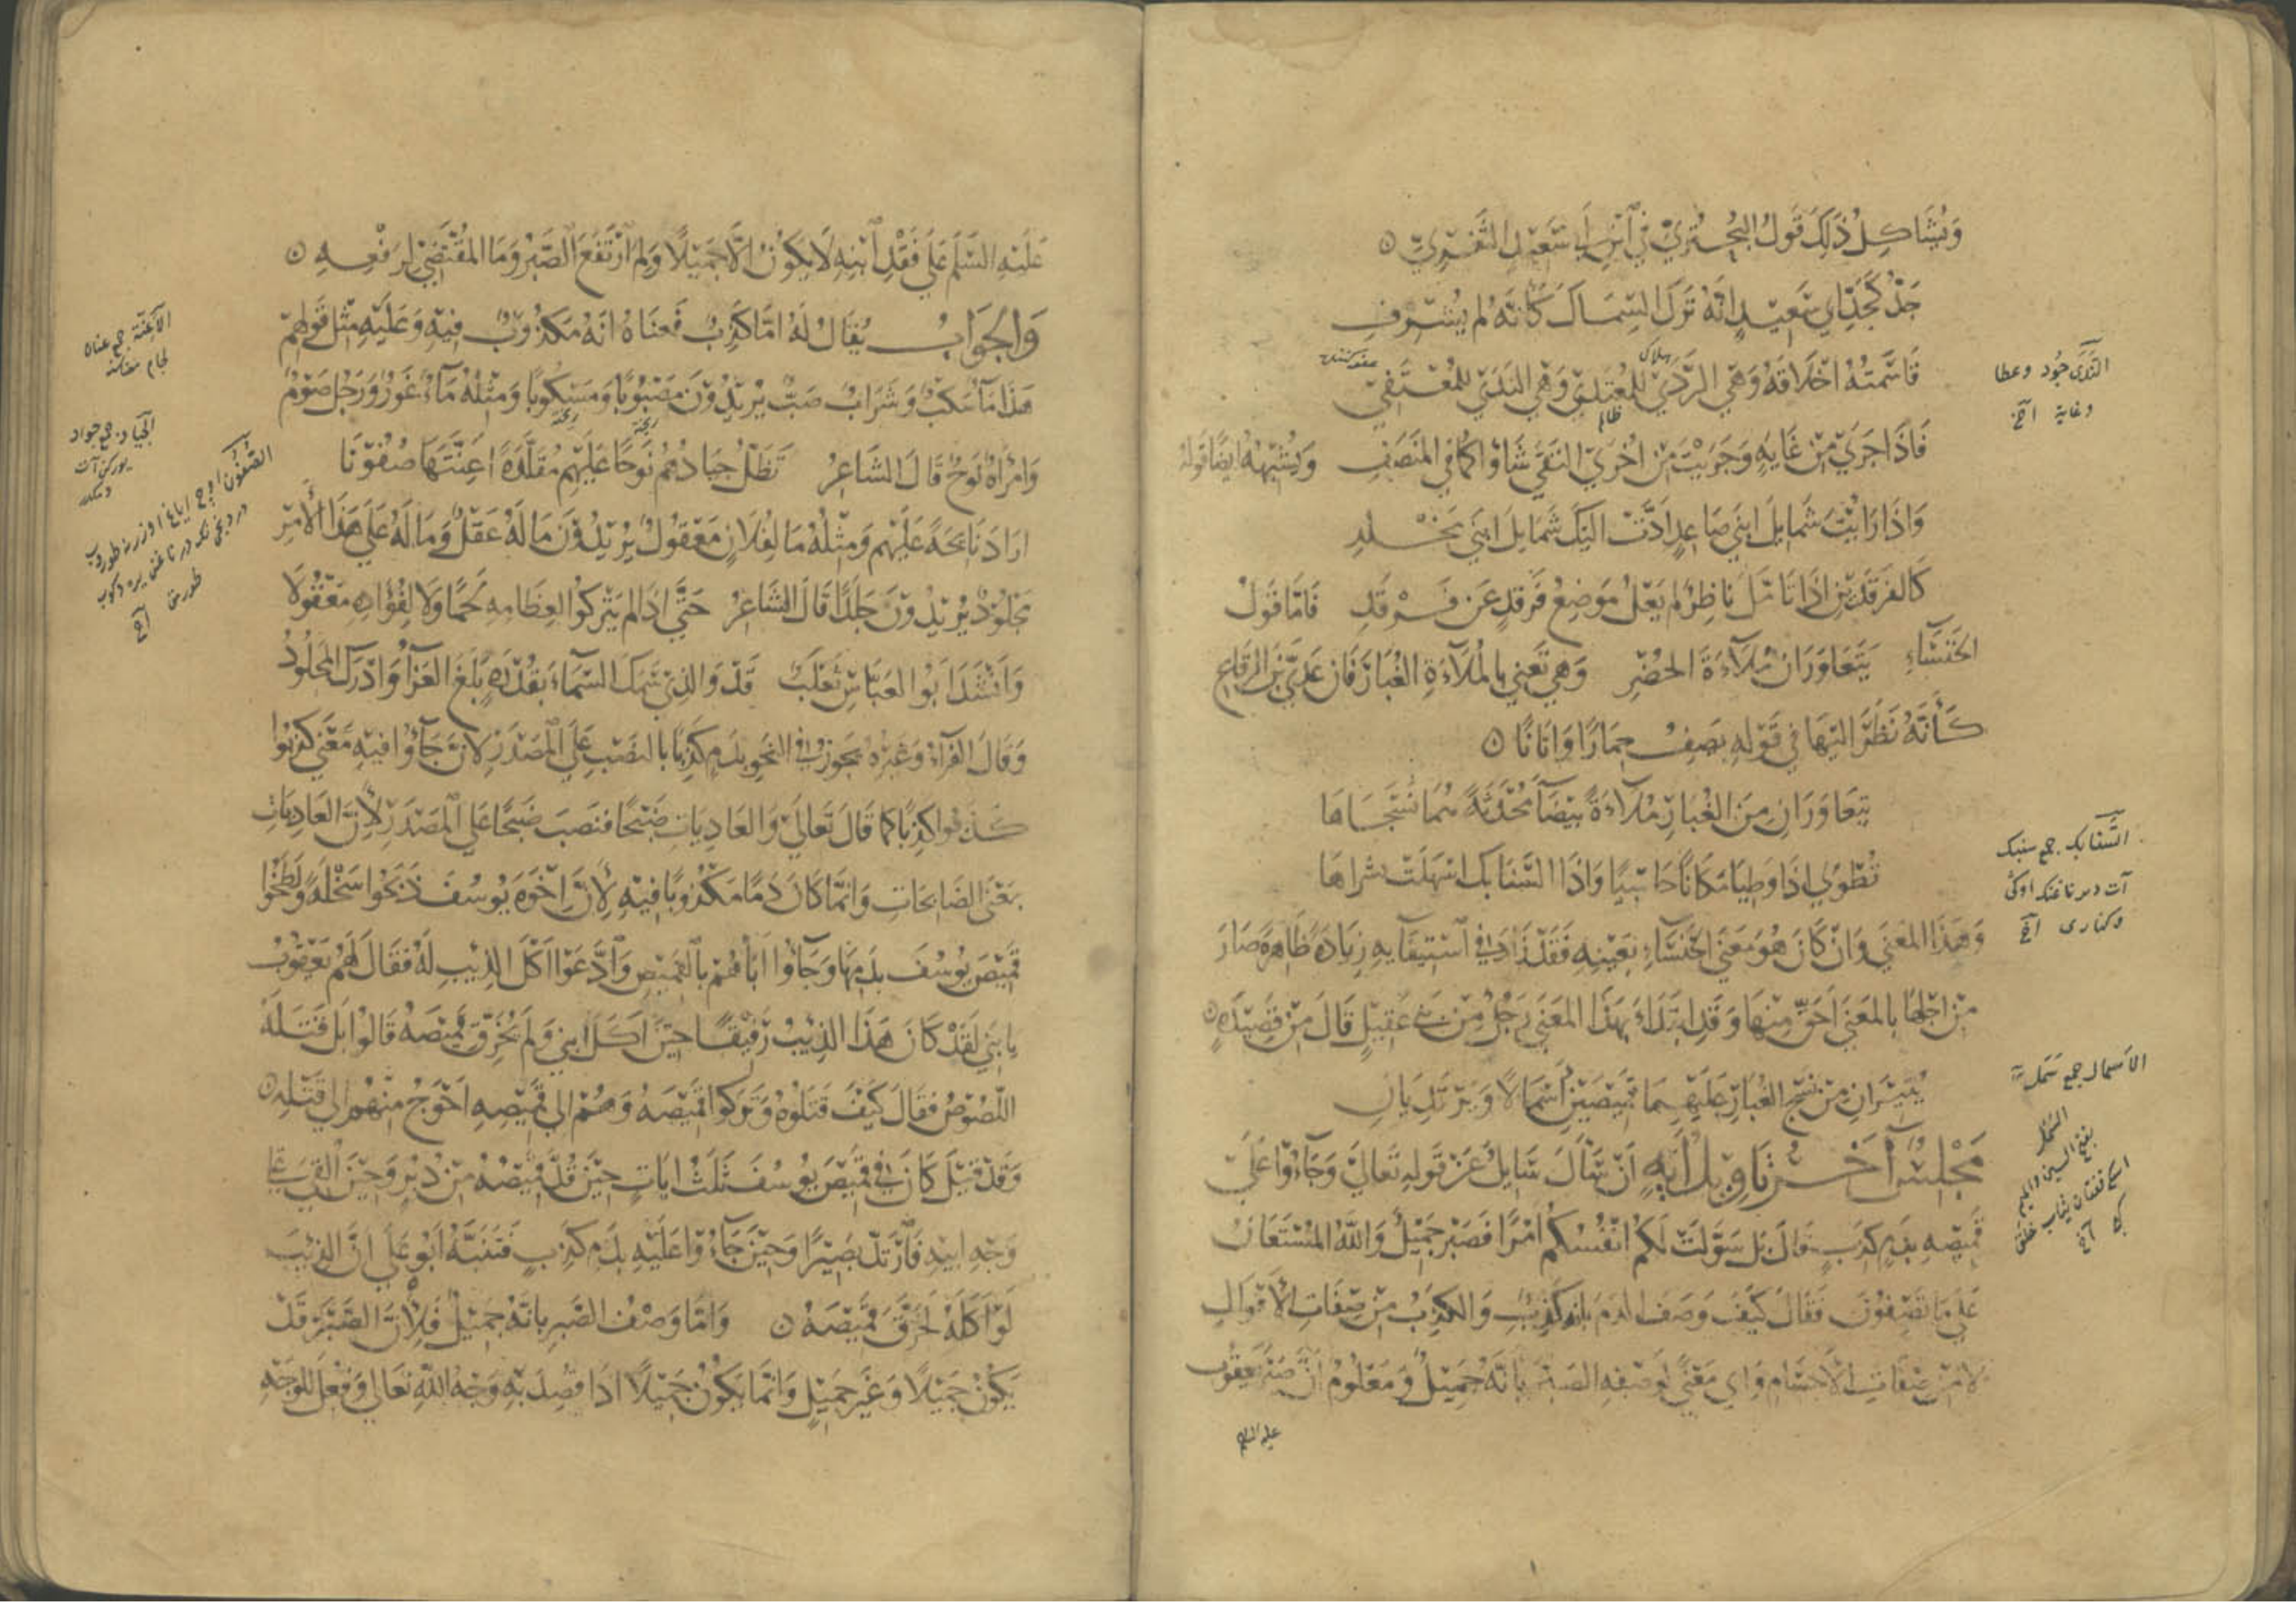 وَيُشَاكِلُ ذٰلِكَ قَوْلُ البُحْتُرِيّ فِي ابْنِ اَبِي سَعِيدٍ الثَّغْرِيّ ۞
جَدٌّ كَجَدِّ اَبِي سَعِيدٍ اِنَّهُ تَرَكَ السِّمَاكَ كَاَنَّهُ لَمْ يُشْرِفِ
قَاسَمْتُهُ اَخْلَاقَهُ وَهْيَ الرَّدَي لِلْمُعْتَدِيْ وَهْيَ النَّدَيْ لِلْمُعْتَفِيْ
هلاك
ظالم
فَاِذَا جَرَيْ مِنْ غَايَةٍ وَجَرَيْتَ مِنْ اُخْرَيْ التَقَيْ شَاْوَاكُمَا فِي المَنْصَفِ وَيُشْبِهُهُ اَيْضًا قَوْلُهُ
وَاِذَا رَاَيْتَ شَمَايِلَ ابْنَيْ صَاعِدٍ اَدَّتْ اِلَيْكَ شَمَايِلَ ابْنَيْ مَخْلَدِ
كَالفَرْقَدَيْنِ اِذَا تَاَمَّلَ نَاظِرٌ لَمْ يَعْلُ مَوْضِعُ فَرْقَدٍ عَنْ فَرْقَدِ فَاَمَّا قَوْلُ
الخَنْسَاءِ يَتَعَاوَرَانِ مُلَاءَةَ الحُضْرِ وَهْيَ تَعْنِي بِالمُلَاءَةِ الغُبَارَ فَاِنَّ عَدِيَّ بْنَ الرِّقَاعِ
كَاَنَّهُ نَظَرَ اِلَيْهَا فِي قَوْلِهِ يَصِفُ حِمَارًا وَاَتَانًا ۞
يَتَعَاوَرَانِ مِنَ الغُبَارِ مُلَاءَةً بَيْضَاءَ مُحْدَثَةً هُمَا نَسَجَاهَا
تُطْوَي اِذَا وَطِيَا مَكَانًا جَاسِيًا وَاِذَا السَّنَابِكُ اَسْهَلَتْ نَشَرَاهَا
وَهَذَا المَعْنَي وَاِنْ كَانَ هُوَ مَعْنَي الخَنْسَاءِ بِعَيْنِهِ فَقَدْ زَادَ فِي اسْتِيفَايِهِ زِيَادَةً ظَاهِرَةً صَارَ
مِنْ اَجْلِهَا بِالمَعْنَي اَحَقَّ مِنْهَا وَقَدِ ابْتَدَاَ بِهَذَا المَعْنَي رَجُلٌ مِنْ بَنِي عُقَيْلٍ قَالَ مِنْ قَصِيْدَةٍ ۞
يُثِيْرَانِ مِنْ نَسْجِ الغُبَارِ عَلَيْهِمَا قَمِيْصَيْنِ اَسْمَالًا وَيَرْتَدِيَانِ
مَجْلِسٌ آخَرُ تَاوِيْلُ اٰيَةٍ اِنْ سَاَلَ سَايِلٌ عَنْ قَوْلِهِ تَعَالَيْ وَجَاءُوْا عَلَيْ
قَمِيْصِهِ بِدَمٍ كَذِبٍ قَالَ بَلْ سَوَّلَتْ لَكُمْ اَنْفُسُكُمْ اَمْرًا فَصَبْرٌ جَمِيْلٌ وَاللّٰهُ المُسْتَعَانُ
عَلَي مَا تَصِفُوْنَ فَقَالَ كَيْفَ وَصَفَ الدَّمَ بِاَنَّهُ كَذِبٌ وَالكَذِبُ مِنْ صِفَاتِ الاَقْوَالِ
لَا مِنْ صِفَاتِ الاَجْسَامِ وَاَيّ مَعْنًي لِوَصْفِهِ الصَّبْرَ بِاَنَّهُ جَمِيْلٌ وَمَعْلُوْمٌ اَنَّ صَبْرَ يَعْقُوْبَ
عليه السلم
النَّدَي جُود وعطا
وغاية اخ
السَّنابك جمع سنبك
وكنارى اخ
الاَسمال جمع سَمَل
السَّمَل
بفتح السين والميم
عَلَيْهِ السَّلَمُ عَلَي فَقْدِ ابْنِهِ لَا يَكُوْنُ اِلَّا جَمِيْلًا وَلِمَ ارْتَفَعَ الصَّبْرُ وَمَا المُقْتَضِيْ لِرَفْعِهِ ۞
وَالجَوَابُ يُقَالُ لَهُ اَمَّا كَذِبٌ فَمَعْنَاهُ اَنَّهُ مَكْذُوْبٌ فِيْهِ وَعَلَيْهِ مِثْلُ قَوْلِهِمْ
هَذَا مَاءٌ سَكْبٌ وَشَرَابٌ صَبٌّ يُرِيْدُوْنَ مَصْبُوْبًا وَمَسْكُوْبًا وَمِثْلُهُ مَاءٌ غَوْرٌ وَرَجُلٌ صَوْمٌ
وَامْرَاَةٌ نَوْحٌ قَالَ الشَّاعِرُ تَظَلُّ جِيَادُهُمْ نَوْحًا عَلَيْهِمْ مُقَلَّدَةً اَعِنَّتَهَا صُفُوْنَا
اَرَادَ نَائِحَةً عَلَيْهِمْ وَمِثْلُهُ مَا لِفُلَانٍ مَعْقُوْلٌ يُرِيْدُوْنَ مَا لَهُ عَقْلٌ وَمَا لَهُ عَلَي هَذَا الاَمْرِ
مَجْلُوْدٌ يُرِيْدُوْنَ جَلَدًا قَالَ الشَّاعِرُ حَتَّي اِذَا لَمْ يَتْرُكُوْا لِعِظَامِهِ لَحْمًا وَلَا لِفُؤَادِهِ مَعْقُوْلَا
وَاَنْشَدَ اَبُوْ العَبَّاسِ ثَعْلَبٌ قَدْ وَالَّذِيْ سَمَكَ السَّمَاءَ بِقُدْرَةٍ بَلَغَ العَزَاءُ وَاَدْرَكَ المَجْلُوْدُ
وَقَالَ الفَرَّاءُ وَغَيْرُهُ يَجُوْزُ فِي النَّحْوِ بِدَمٍ كَذِبًا بِالنَّصْبِ عَلَي المَصْدَرِ لِاَنَّ جَاؤُا فِيْهِ مَعْنَي كَذَبُوْا
كَذَبُوْا كَذِبًا كَمَا قَالَ تَعَالَي وَالعَادِيَاتِ ضَبْحًا فَنَصَبَ ضَبْحًا عَلَي المَصْدَرِ لِاَنَّ العَادِيَاتِ
بِمَعْنَي الضَّابِحَاتِ وَاِنَّمَا كَانَ دَمًا مَكْذُوْبًا فِيْهِ لِاَنَّ اِخْوَةَ يُوْسُفَ ذَبَحُوْا سَخْلَةً وَلَطَّخُوْا
قَمِيْصَ يُوْسُفَ بِدَمِهَا وَجَاؤُا اَبَاهُمْ بِالقَمِيْصِ وَادَّعَوْا اَكْلَ الذِّيْبِ لَهُ فَقَالَ لَهُمْ يَعْقُوْبُ
يَا بَنِيَّ لَقَدْ كَانَ هَذَا الذِّيْبُ رَفِيْقًا حِيْنَ اَكَلَ ابْنِي وَلَمْ يُخَرِّقْ قَمِيْصَهُ قَالُوْا بَلْ قَتَلَهُ
اللُّصُوْصُ فَقَالَ كَيْفَ قَتَلُوْهُ وَتَرَكُوْا قَمِيْصَهُ وَهُمْ اِلَي قَمِيْصِهِ اَحْوَجُ مِنْهُمْ اِلَي قَتْلِهِ ۞
وَقَدْ قِيْلَ كَانَ فِي قَمِيْصِ يُوْسُفَ ثَلٰثُ اٰيَاتٍ حِيْنَ قُدَّ قَمِيْصُهُ مِنْ دُبُرٍ وَحِيْنَ اُلْقِيَ عَلَي
وَجْهِ اَبِيْهِ فَارْتَدَّ بَصِيْرًا وَحِيْنَ جَاءُوْا عَلَيْهِ بِدَمٍ كَذِبٍ فَتَنَبَّهَ اَبُوْهُ عَلَي اَنَّ الذِّيْبَ
لَوْ اَكَلَهُ لَخَرَّقَ قَمِيْصَهُ ۞ وَاَمَّا وَصْفُ الصَّبْرِ بِاَنَّهُ جَمِيْلٌ فَلِاَنَّ الصَّبْرَ قَدْ
يَكُوْنُ جَمِيْلًا وَغَيْرَ جَمِيْلٍ وَاِنَّمَا يَكُوْنُ جَمِيْلًا اِذَا قُصِدَ بِهِ وَجْهُ اللّٰهِ تَعَالَي وَفُعِلَ لِلْوَجْهِ
الاَعِنَّة جمع عنان
الجِياد جمع جواد